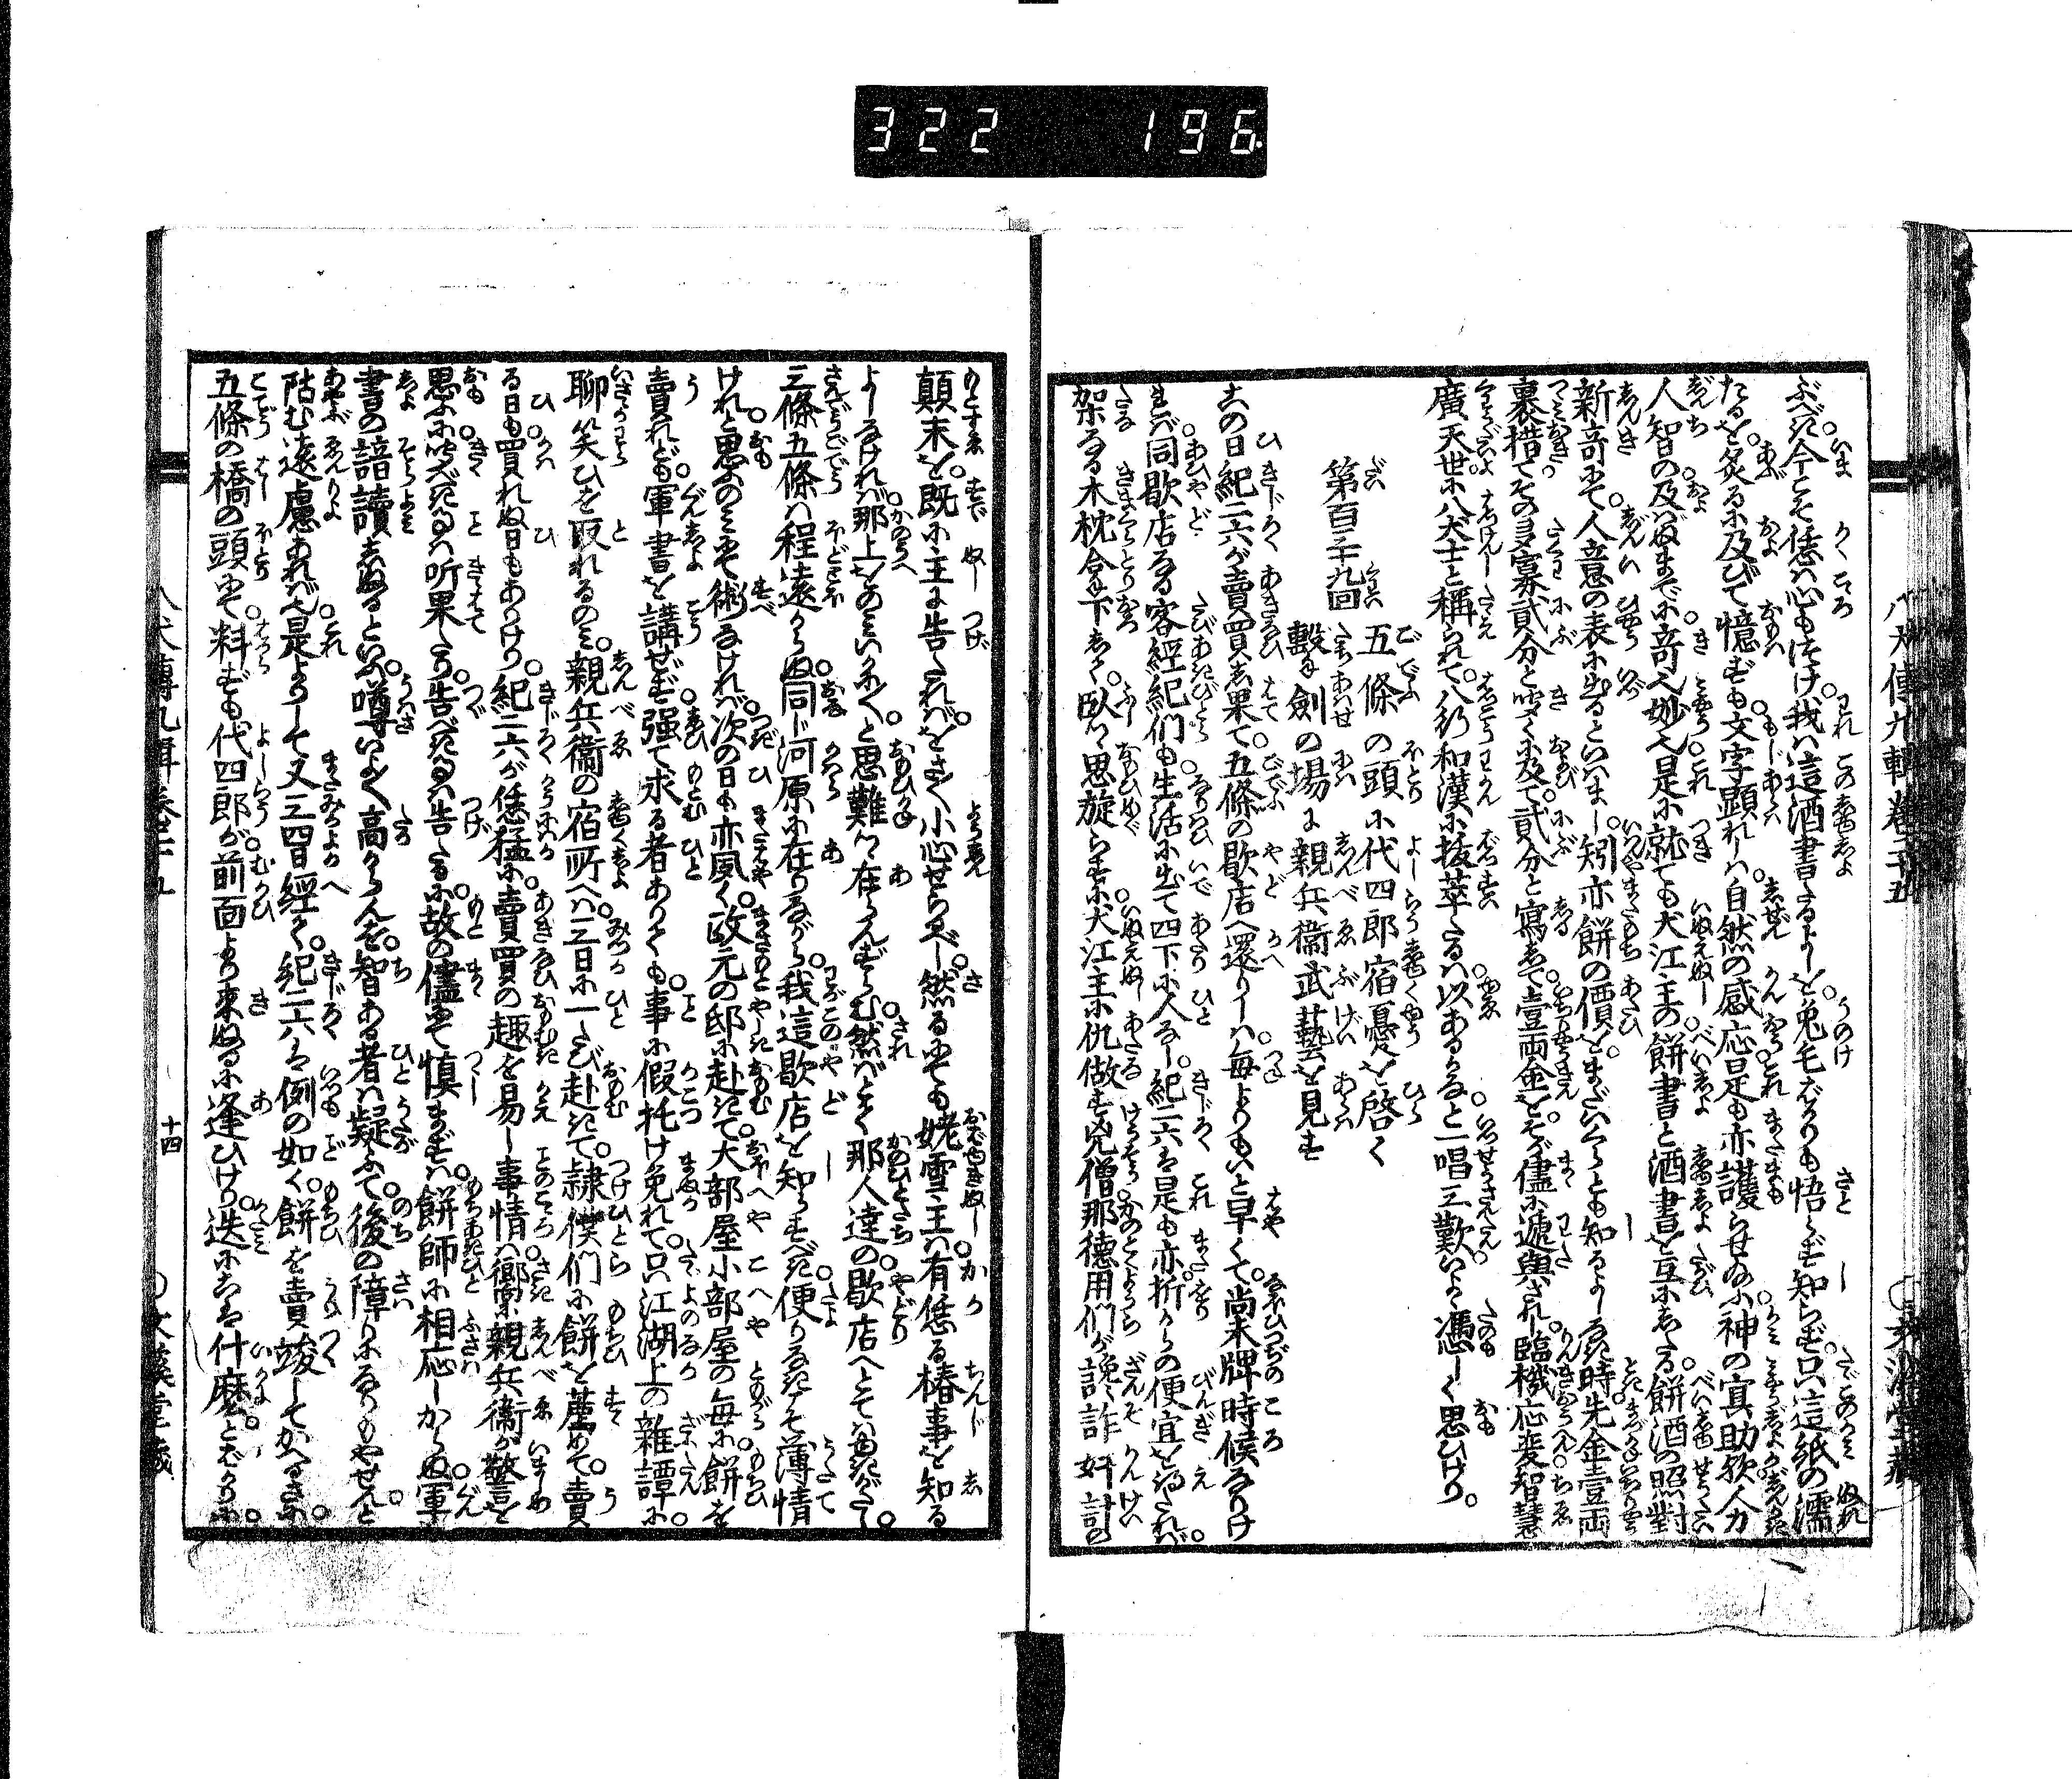 322 196
八犬傳九輯巻二十五
文溪堂藏
ぶべき。今こそ恁ハ心もつけ。我ハ這酒書あるよしを。兎毛ばかりも悟らず知らず。只這紙の濡
たるを。炙るに及びて。憶ずも文字顕れしハ。自然の感応。是も亦護らせ給ふ。神の冥助歟。人力
人智の及ハぬまでに。奇也妙也。是に就ても犬江主の。餅書と酒書と。互にしたる。餅酒の照對
新奇にて。人意の表に出るといハまし。矧亦餅の價を。まだいくらとも知るよしなき時。先金壹両
裏措てその多寡貳分と咲くに及て。貳分と寫して。壹両金を。そが儘に遞與されし。臨機応変智慧
廣大。世に八犬士と稱られて。八行和漢に抜萃たるハ。以あるかなと一唱三歎。いよゝ憑しく思ひけり。
第百三十九回
五條の頭に代四郎宿憂を啓く
撃劍の場に親兵衞武藝を見す
その日紀二六が賣買し果て。五條の歇店へ還りしハ。毎よりもいと早くて。尚未牌時候なりけ
れバ。同歇店なる客經紀們も。生活に出て四下に人なし。紀二六ハ是も亦。折からの便宜を得たれバ。
架なる木枕合に下して。臥しつ思旋らすに。犬江主に仇做す。兇僧那德用們が讒訴奸計の
顛末を。既に主に告たれバ。をさ〳〵小心せらるべし。然るにても姥雪主ハ。有恁る椿事を知る
よしなけれバ。那上をのミいかに〳〵と。思難つゝ在らんずらむ。然バとて那人達の。歇店へとてハ思ひがたし。
三條五條ハ程遠からぬ。同じ河原に在りながら。我這歇店を知らすべき。便りなきこそ薄情
けれと。思ふのミにて術なけれバ。次の日も亦夙く。政元の邸に赴きて。大部屋小部屋の毎に餅を
賣れども。軍書を講ぜず。强て求る者ありても。事に假托け免れて。只江湖上の雜譚に。
聊笑ひを取れるのミ。親兵衞の宿所へハ。三日に一たび赴きて。隷僕們に餅を薦めて。賣
る日も。買れぬ日もありけり。紀二六が恁猛に。賣買の趣を易し事情ハ。嚮に親兵衞が警を
思ふに。咲べき事ハ听果たり。告べき事ハ告たるに。故の儘にて慎まずハ。餅師に相応しからぬ。軍
書の諳讀しぬるといふ。噂いよ〳〵高からんを。智ある者ハ疑ふて。後の障りになりもやせんと
阽む遠慮あれバ也。是よりして又三四日經て。紀二六ハ例の如く。餅を賣竣してかへるさに。
五條の橋の頭にて。料ずも代四郎が。前面より來ぬるに逢ひけり。迭にこハ什麼。とばかりに。
八犬傳九輯巻二十五
十四
○文溪堂藏